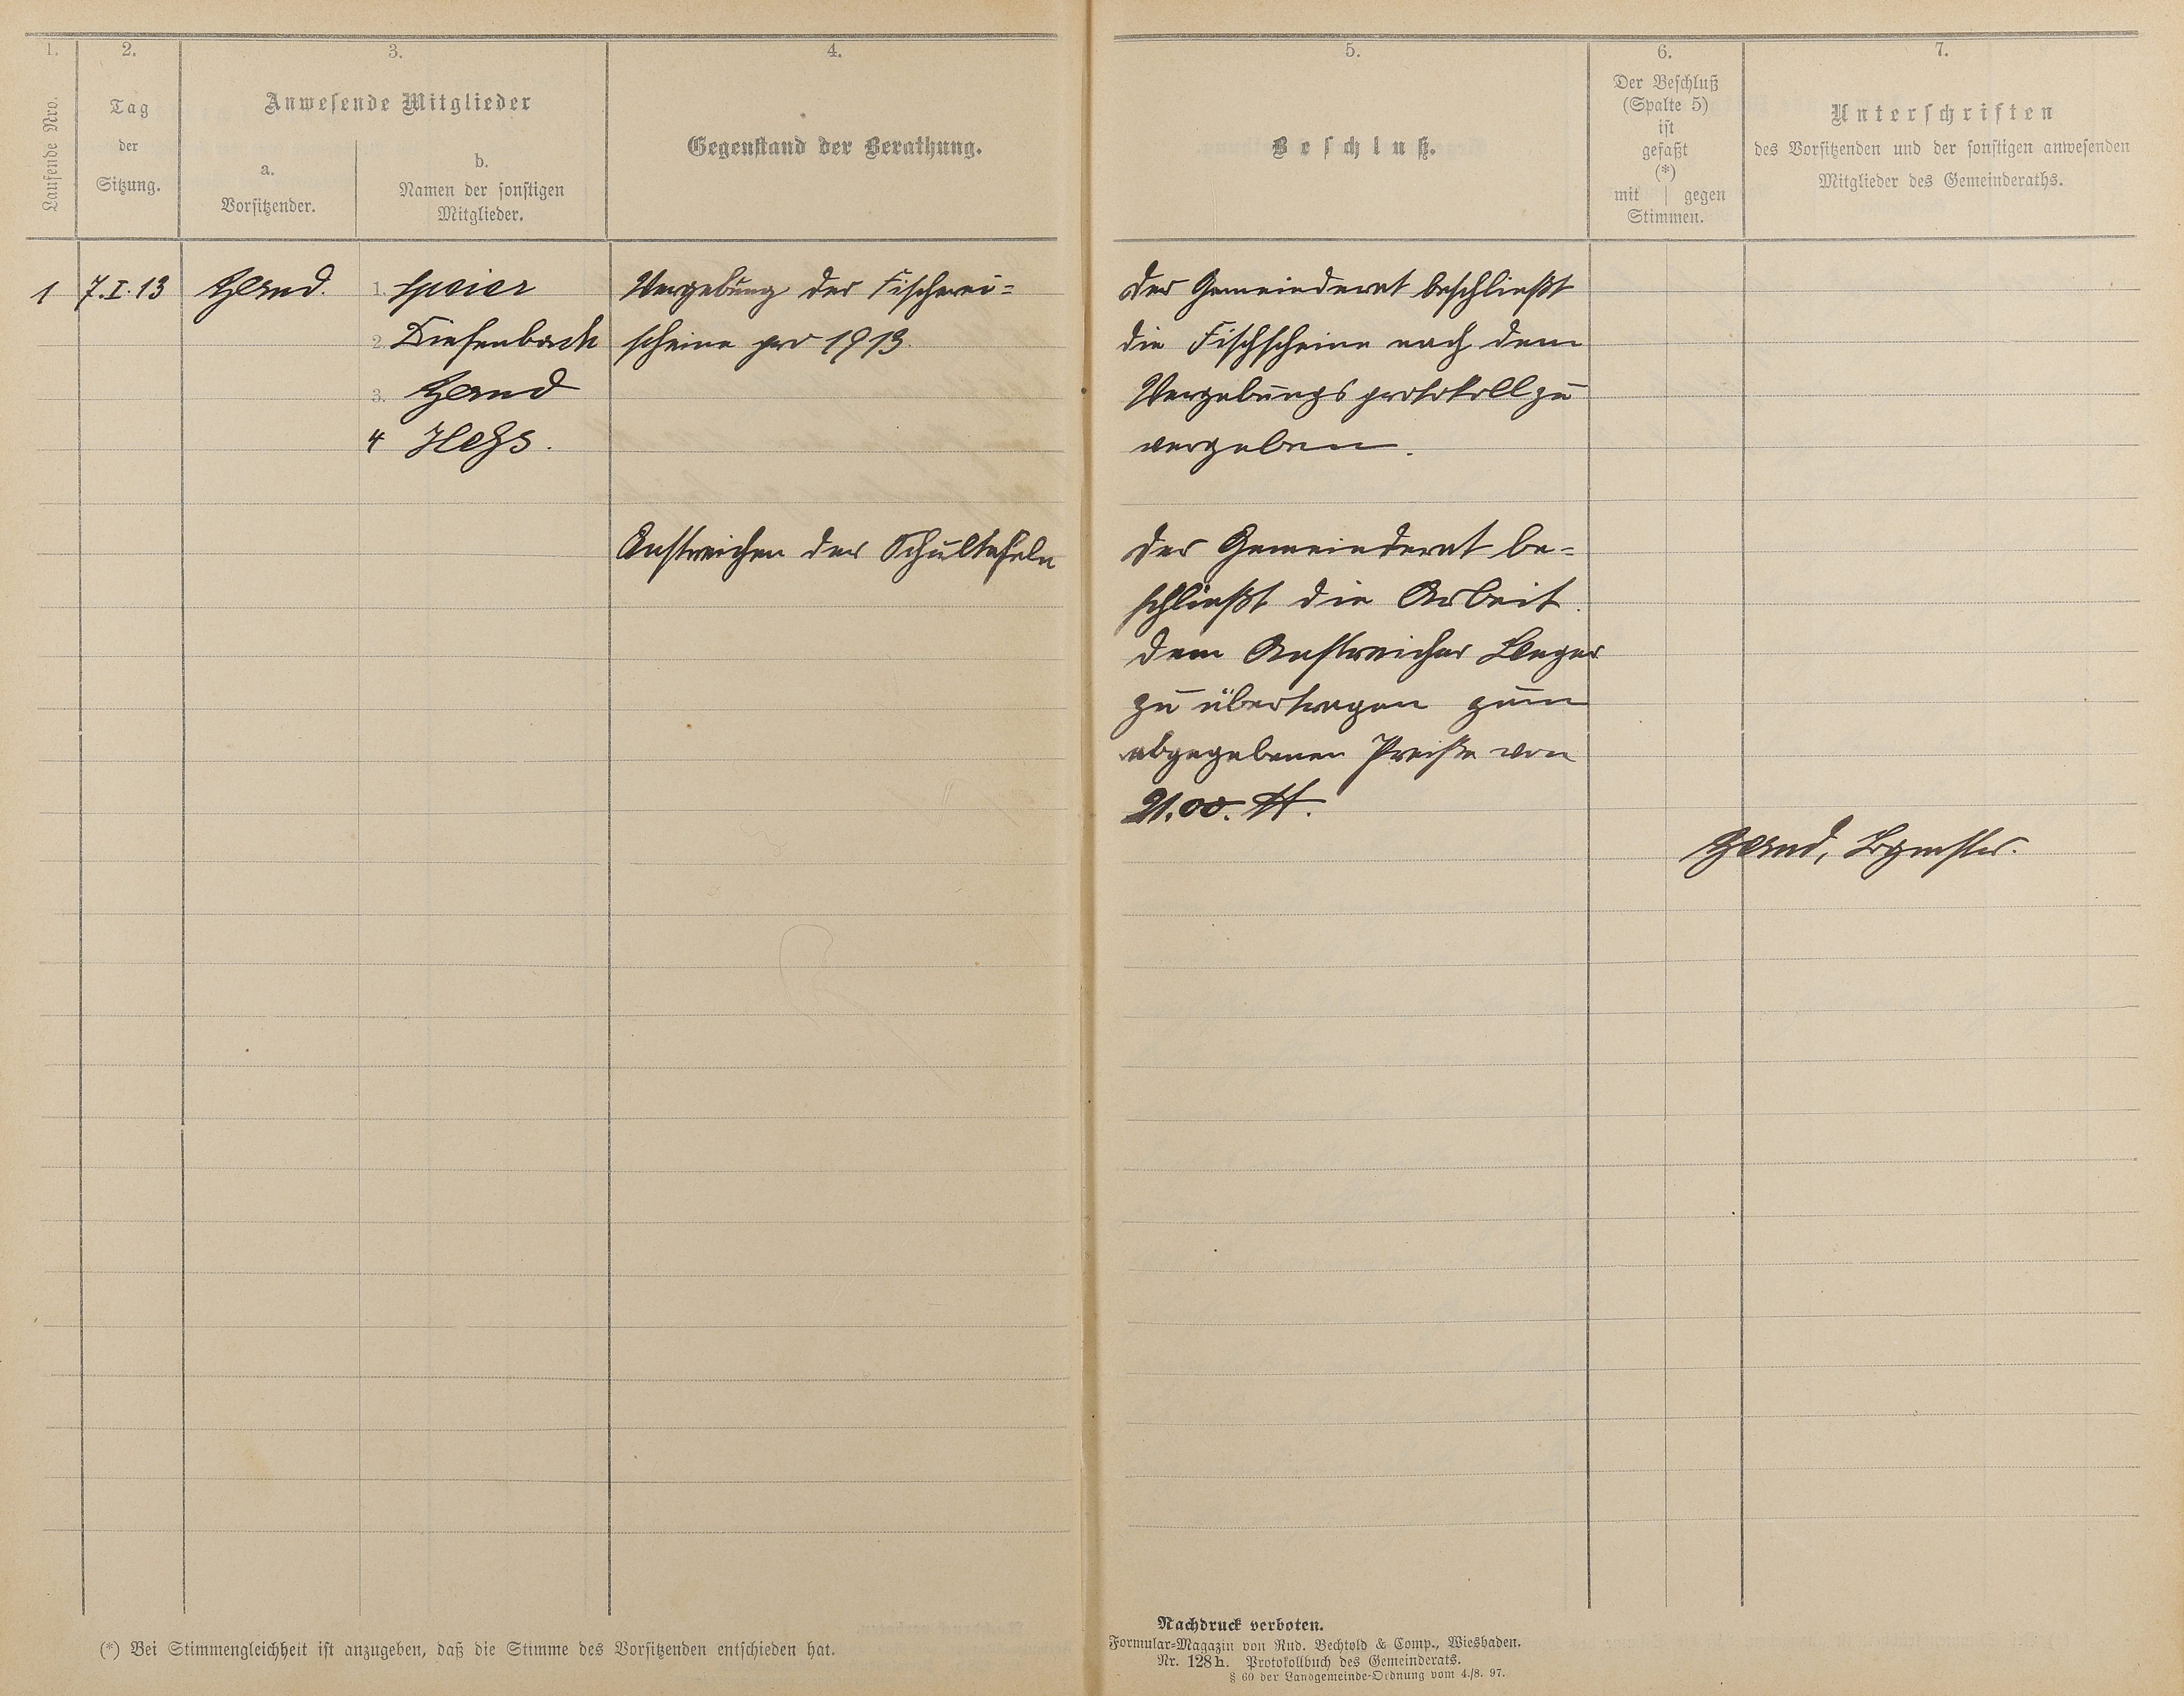 1.
2.
3.
4.
Laufende Nro.
Tag
der
Sitzung.
Anwesende Mitglieder
a.
Vorsitzender.
b.
Namen der sonstigen
Mitglieder.
Gegenstand der Berathung.
1 7.I.13
1. Speier
Vergebung der Fischerei-
2. Diefenbach
scheine pro 1913.
3.
4
Anstreichen der Schultafeln
(*) Bei Stimmengleichheit ist anzugeben, daß die Stimme des Vorsitzenden entschieden hat.
5.
6.
7.
Beschluß.
Der Beschluß
(Spalte 5)
ist
gefaßt
(*)
mit | gegen
Stimmen.
Unterschriften
des Vorsitzenden und der sonstigen anwesenden
Mitglieder des Gemeinderaths.
Der Gemeinderat beschließt
die Fischscheine nach dem
Vergebungsprotokoll zu
vergeben.
Der Gemeinderat be-
schließt die Arbeit
dem Anstreicher
zu übertragen zum
abgegebenen Preiße von
21.00. M.
Bgmstr.
Nachdruck verboten.
Formular-Magazin von Rud. Bechtold & Comp., Wiesbaden.
Nr. 128h. Protokollbuch des Gemeinderats.
§ 60 der Landgemeinde-Ordnung vom 4./8. 97.